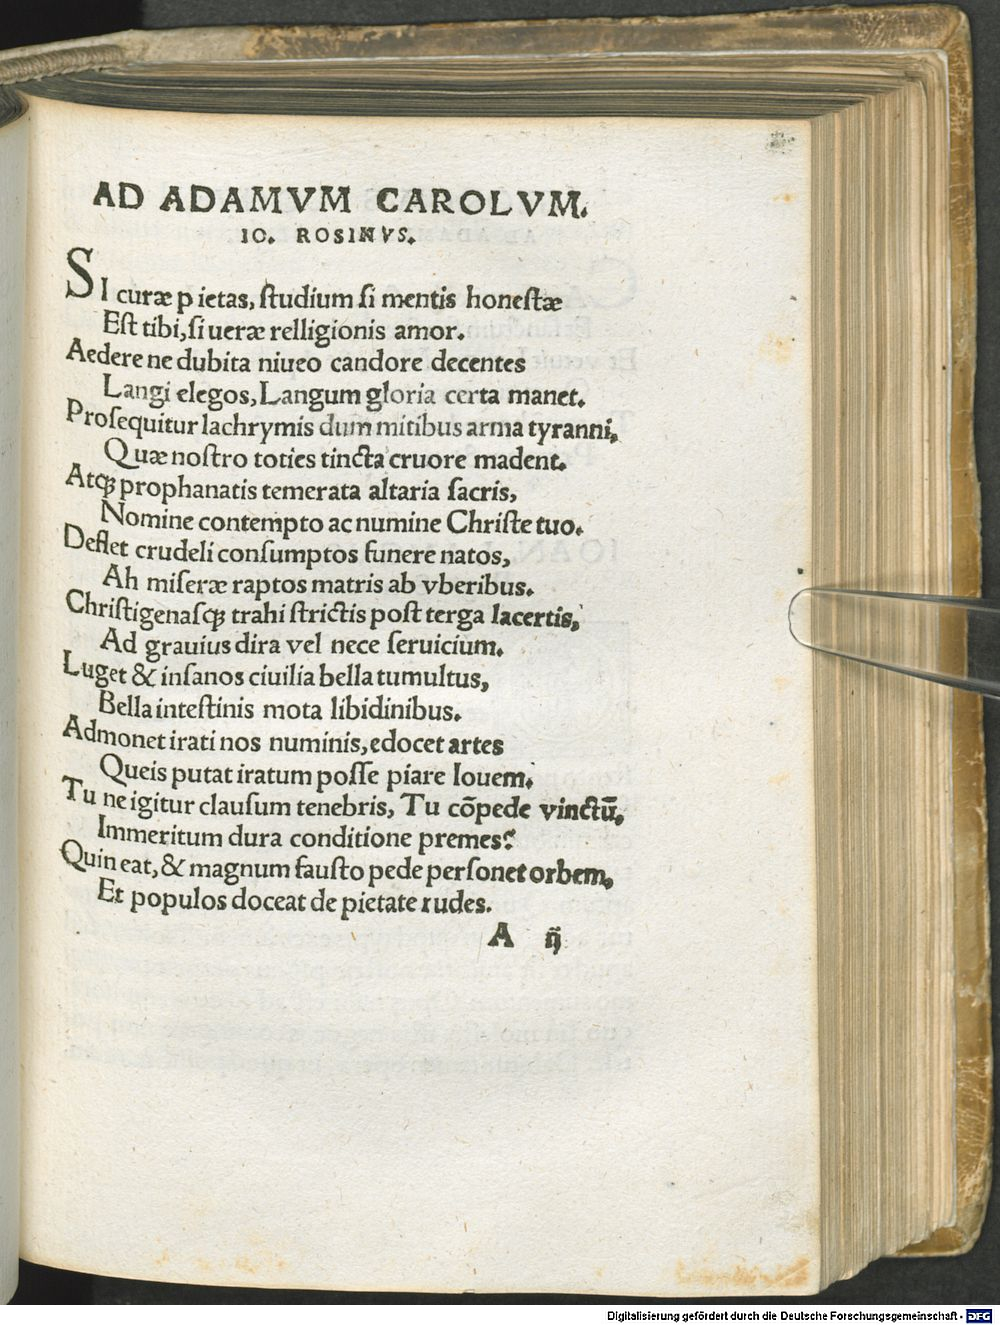 AD ADAMVM CAROLVM.
IO. ROSINVS.
SI curæ p ietas, ſtudium ſi mentis honeſtæ
Eſt tibi, ſi ueræ relligionis amor.
Aedere ne dubita niueo candore decentes
Langi elegos, Langum gloria certa manet.
Proſequitur lachrymis dum mitibus arma tyranni,
Quæ noſtro toties tincta cruore madent.
Atqꝫ prophanatis temerata altaria ſacris,
Nomine contempto ac numine Chriſte tuo.
Deflet crudeli conſumptos funere natos,
Ah miſeræ raptos matris ab vberibus.
Chriſtigenaſqꝫ trahi ſtrictis poſt terga lacertis,
Ad grauius dira vel nece ſeruicium.
Luget & inſanos ciuilia bella tumultus,
Bella inteſtinis mota libidinibus.
Admonet irati nos numinis, edocet artes
Queis putat iratum poſſe piare Iouem.
Tu ne igitur clauſum tenebris, Tu cõpede vinctũ,
Immeritum dura conditione premes?
Quin eat, & magnum fauſto pede perſonet orbem,
Et populos doceat de pietate rudes.
A ij
Digitalisierung gefördert durch die Deutsche Forschungsgemeinschaft - DFG